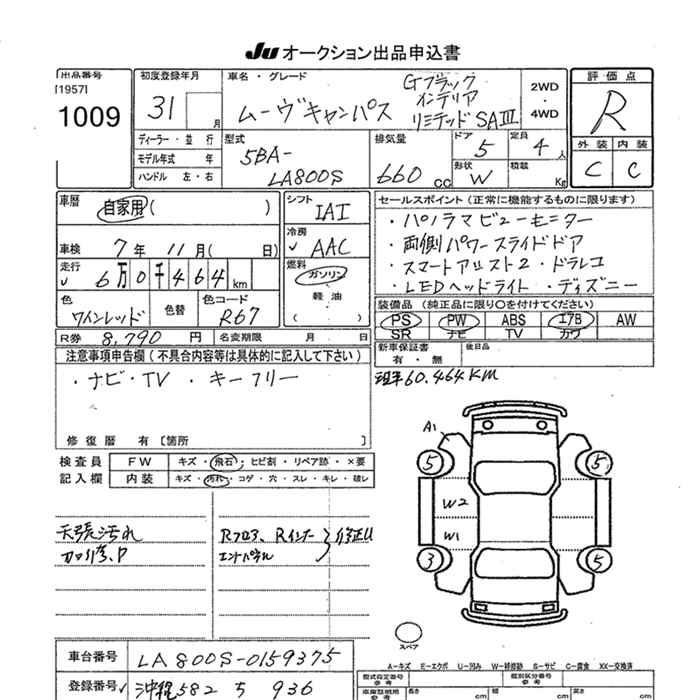 JU オークション出品申込書
出品番号
[1957]
1009
初度登録年月
31 月
車名・グレード
ムーヴキャンバス
Gブラック
インテリア
リミテッド SAⅢ
2WD
・
4WD
評価点
R
外装 内装
C C
ディーラー・並行
モデル年式 年
ハンドル 左・右
型式
5BA-
LA800S
排気量
660 cc
ドア
5
定員
4 人
形状
W
積載
Kg
車暦
自家用( )
車検 7年 11月( 日)
走行
6万0千464 km
色
ワインレッド
色替
色コード
R67
シフト
IAI
冷房
AAC
燃料
ガソリン
軽油
( )
セールスポイント(正常に機能するものに限ります)
・パノラマビューモニター
・両側パワースライドドア
・スマートアシスト2 ・ドラレコ
・LEDヘッドライト ・ディズニー
装備品(純正品に限り〇を付けてください)
PS PW ABS エアB AW
SR ナビ TV カワ
R券 8,790 円
名変期限 月 日
新車保証書
有・無
後日品
注意事項申告欄(不具合内容等は具体的に記入して下さい)
・ナビ・TV ・キーフリー
修復暦 有〔箇所 〕
60.464KM
検査員
記入欄
FW キズ・飛石・ヒビ割・リペア跡・×要
内装 キズ・汚れ・コゲ・穴・スレ・キレ・破レ
天張汚れ
Rフロア、Rインナー
エンドパネル
A1
5 5
W2
W1
3 5
スペア
A-キズ E-エクボ U-凹み W-補修跡 S-サビ C-腐食 XX-交換済
車台番号
LA800S-0159375
登録番号
沖縄582 ち 936
型式指定番号
参考
類別区分番号
参考
長さ cm 幅 cm 高さ cm